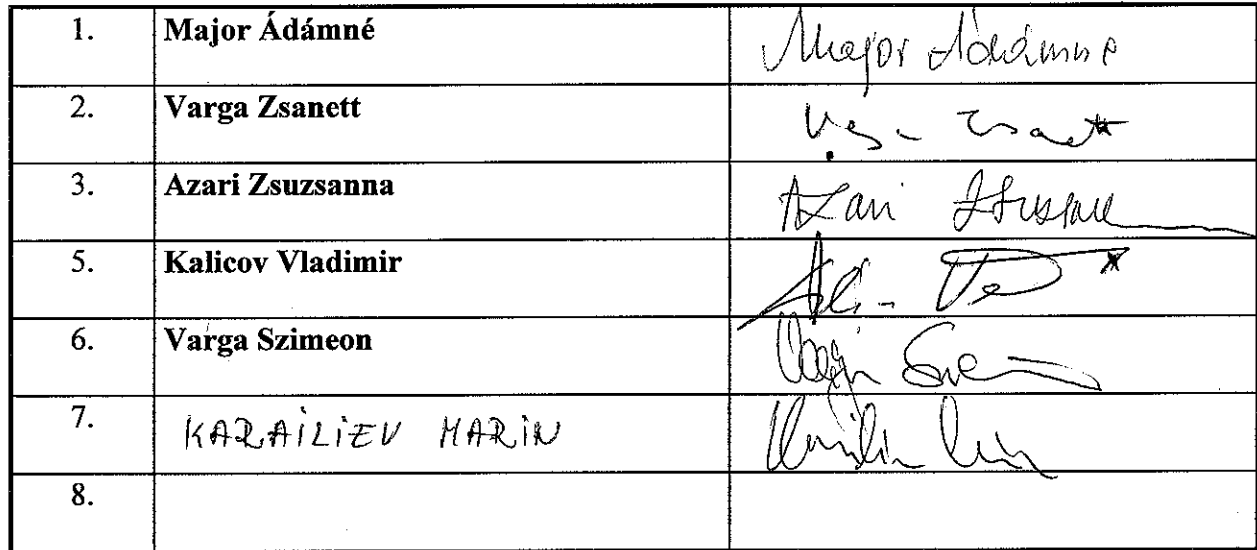 1. Major Ádámné Major Ádámné
2. Varga Zsanett
3. Azari Zsuzsanna Azari
5. Kalicov Vladimir
6. Varga Szimeon
7. KARAILIEV MARIN
8.